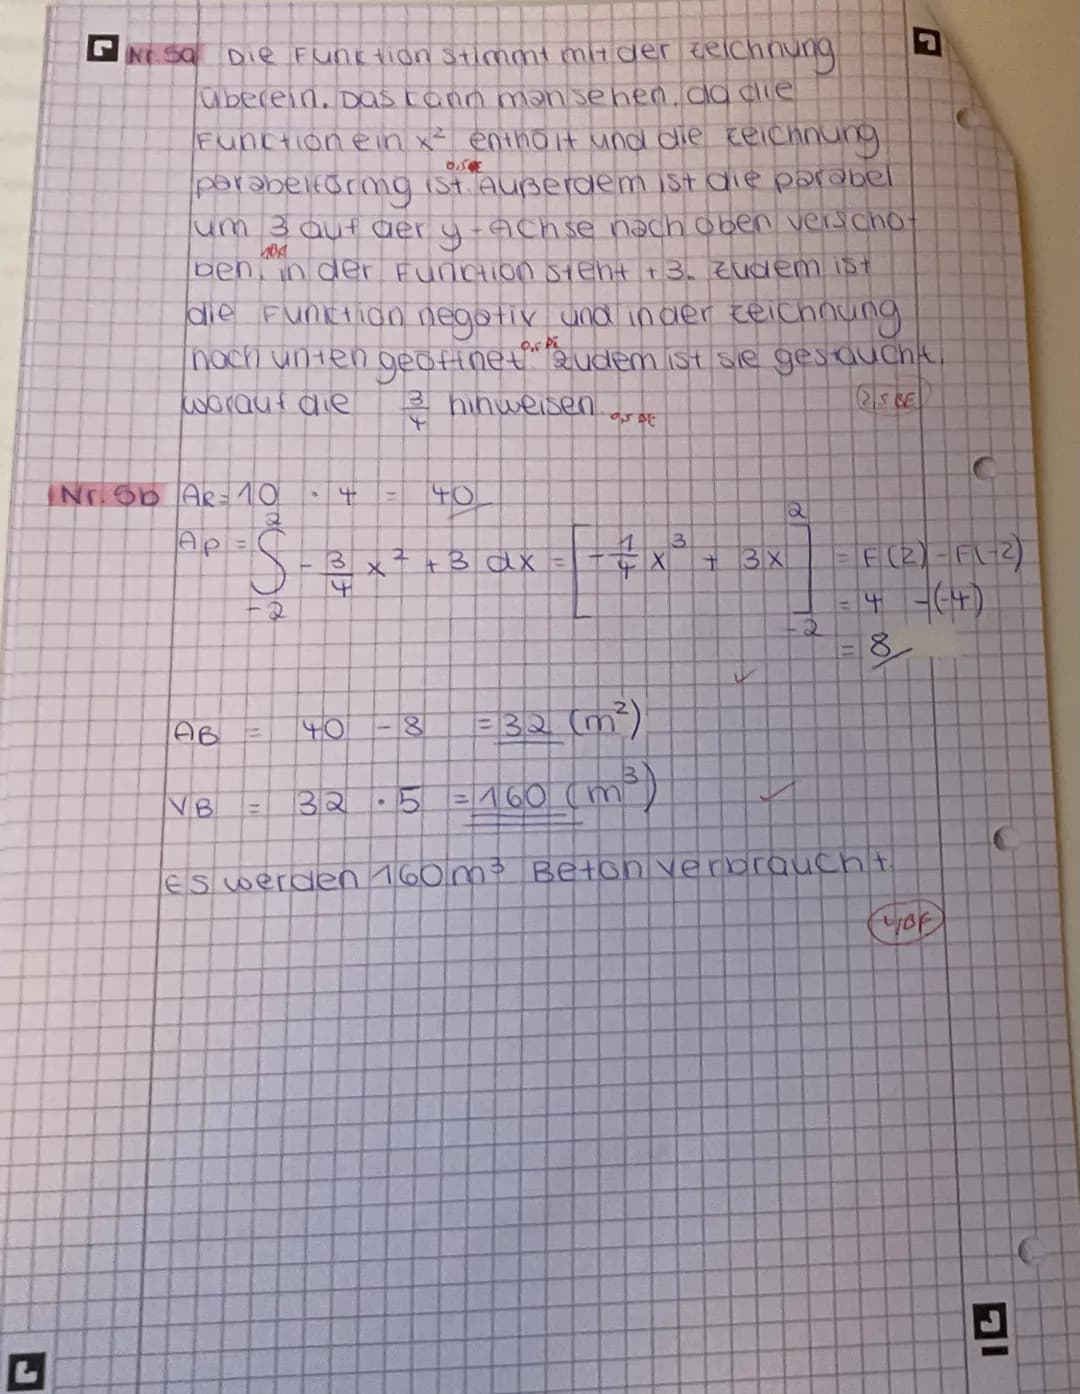 Nr. 5a Die Funktion stimmt mit der Zeichnung
überein. Das kann man sehen, da die
Funktion ein x² enthält und die Zeichnung
0,5
parabelförmig ist. Außerdem ist die Parabel
um 3 auf der y-Achse nach oben verscho-
ben, in der Funktion steht +3. Zudem ist
die Funktion negativ und in der Zeichnung
0,5 BE
nach unten geöffnet. Zudem ist sie gestaucht,
worauf die 3/4 hinweisen. 0,5 BE
2,5 BE
Nr. 5b AR = 10 · 4 = 40
AP = ∫₋₂² -3/4 x² + 3 dx = [-1/4 x³ + 3x]₋₂² = F(2) - F(-2)
= 4 -(-4)
= 8
✓
AB = 40 - 8 = 32 (m²)
VB = 32 · 5 = 160 (m³) ✓
Es werden 160m³ Beton verbraucht.
4BE